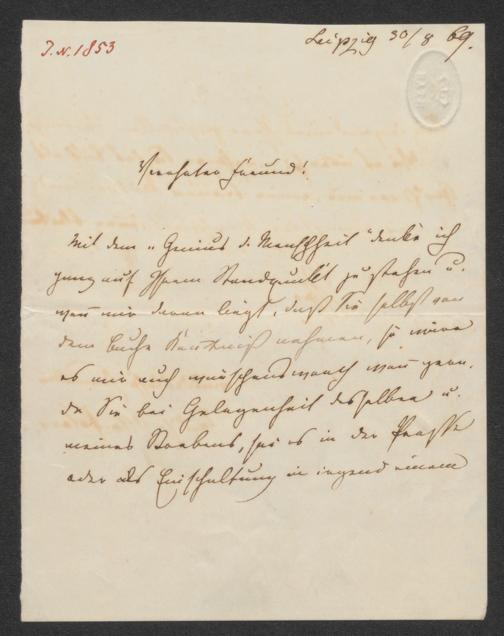 J.N. 1853
Leipzig 30/8 69.
Verehrter Freund!
Mit dem „Genius d. Menschheit" denke ich
ganz auf Ihrem Standpunkt zu stehen u.
wenn mir daran liegt, daß Sie selbst von
dem Buche Kenntniß nehmen, so wäre
es mir auch wünschenswerth wenn
Sie bei Gelegenheit desselben u.
meines Strebens, sei es in der Presse
oder als Einschaltung in irgend einem